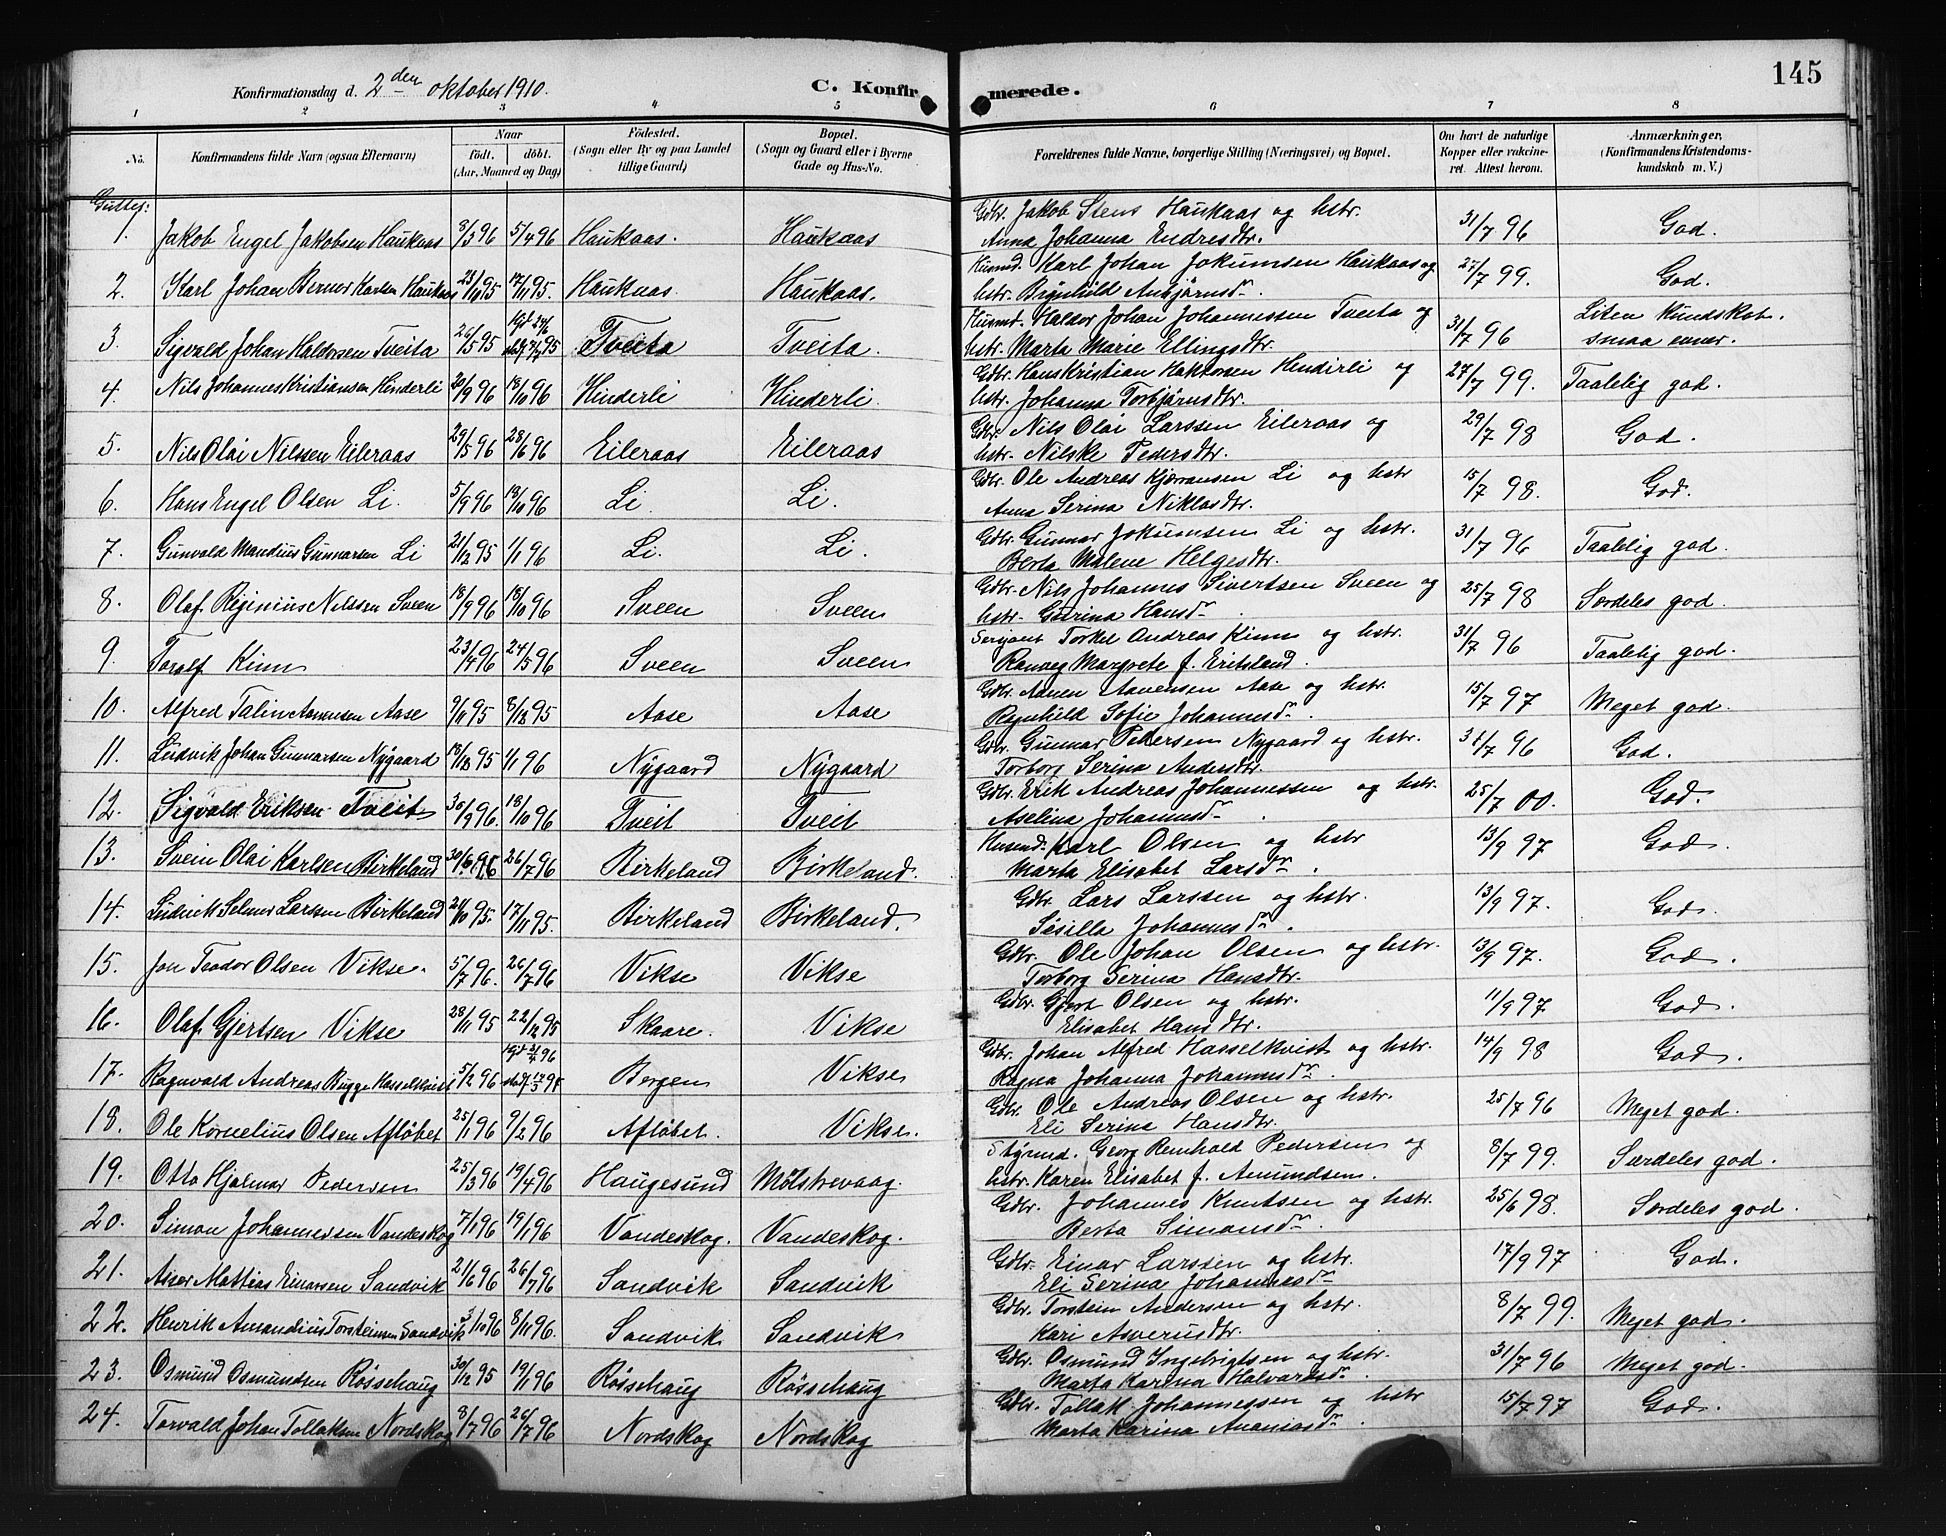 145
Konfirmationsdag d. 2den oktober 1910. C. Konfirmerede.
1 2 3 4 5 6 7 8
No. Konfirmandens fulde Navn (ogsaa Efternavn) Naar født. døbt. (Aar, Maaned og Dag) Fødested. (Sogn eller By og paa Landet tillige Gaard) Bopæl. (Sogn og Gaard eller i Byerne Gade og Hus-No. Forældrenes fulde Navne, borgerlige Stilling (Næringsvei) og Bopæl. Om havt de naturlige Kopper eller vakcineret. Attest herom. Anmærkninger. (Konfirmandens Kristendomskundskab m. V.)
Gutter:
1. Jakob Engel Jakobsen Haukaas 8/3 96 5/4 96 Haukaas. Haukaas Gdbr. Jakob Stens Haukaas og hstr. Anna Johanna Endresdtr. 31/7 96 God.
2. Karl Johan Berner Karlsen Haukaas 23/10 95 17/11 95. Haukaas Haukaas. Husmd. Karl Johan Jokumsen Haukaas og hstr. Brynhild Asbjørnsdr. 27/7 99. God.
3. Sigvald Johan Haldorsen Tveita 26/5 95 Tveita Tveita. Husmd. Haldor Johan Johannessen Tveita og hstr. Marta Marie Ellingsdtr. 31/7 96 Liten Kundskab. smaa evner.
4. Nils Johannes Kristiansen Hinderli 20/9 96 18/10 96 Hinderli Hinderli. Gdbr. Hans Kristian Haktorsen Hindirli og hstr. Johanna Torbjørnsdtr. 27/7 99. Taalelig god.
5. Nils Olai Nilssen Eileraas 29/5 96 28/6 96 Eileraas Eileraas Gdbr. Nils Olai Larssen Eileraas og hstr. Nilske Pedersdtr. 29/7 98 God.
6. Hans Engel Olsen Li. 5/9 96 18/10 96 Li. Li. Gdbr. Ole Andreas Kjørransen Li og hstr Anna Serina Niklasdtr. 15/7 98. God.
7. Gunvald Mandius Gunnarsen Li 21/12 95 1/1 96 Li. Li. Gdbr. Gunnar Jokumsen Li og hstr. Berta Malene Helgesdtr. 31/7 96 Taalelig god.
8. Olaf Reginius Nilssen Sveen 18/9 96 18/10 96 Sveen Sveen Gdbr. Nils Johannes Sivertsen Sveen og hstr. Gurina Hansdr. 25/7 98 Særdeles god.
9. Toralf Kinn 23/4 96 24/5 96 Sveen Sveen Serjant Torkel Andreas Kinn og hstr. Ranveg Margrete f. Eritsland. 31/7 96 Taalelig god.
10. Alfred Talin Aanensen Aase 9/11 95 8/12 95 Aase Aase Gdbr. Aanen Aanensen Aase og hstr. Regnhild Sofie Johannesdr. 15/7 97 Meget god.
11. Ludvik Johan Gunnarsen Nygaard 18/12 95 1/1 96 Nygaard Nygaard Gdbr. Gunnar Pedersen Nygaard og hstr. Torborg Serina Andersdtr. 31/7 96 God.
12. Sigvald Eriksen Tveit 30/9 96. 18/10 96 Tveit Tveit Gdbr. Erik Andreas Johannessen og hstr. Aselina Johannesdr. 25/7 00. God.
13. Svein Olai Karlsen Birkeland 30/6 96 26/7 96 Birkeland Birkeland. Husmd. Karl Olsen og hstr Marta Elisabet Larsdr. 13/9 97 God.
14. Ludvik Selmer Larssen Birkeland 21/10 95. 17/11 95. Birkeland Birkeland. Gdbr. Lars Larssen og hstr. Sisilla Johannesdr. 13/9 97. God.
15. Jon Teodor Olsen Vikse. 5/7 96. 26/7 96 Vikse Vikse Gdbr. Ole Johan Olsen og hstr. Torborg Serina Hansdtr. 13/9 97. God.
16. Olaf Gjertsen Vikse 28/11 95 22/12 95 Skaare. Vikse Gdbr. Gjert Olsen og hstr. Elisabet Hansdtr. 11/9 97 God.
17. Ragnvald Andreas Bugge Hasselkvist 5/2 96 Bergen Vikse Gdbr. Johan Alfred Hasselkvist og hstr. Ragna Johanna Johannesdr. 14/9 98 God.
18. Ole Kornelius Olsen Afløbet 25/1 96 9/2 96 Afløbet. Vikse. Gdbr. Ole Andreas Olsen og hstr. Eli Serina Hansdtr. 25/7 96 Meget god.
19. Otto Hjalmar Pedersen 25/3 96 19/4 96 Haugesund Mølstrevaag. Styrmd. Georg Renhold Pedersen og hstr. Karen Elisabet f. Amundsen. 8/7 99. Særdeles god.
20. Simon Johannessen Vandeskog 7/1 96 19/1 96 Vandeskog. Vandeskog. Gdbr. Johannes Knutsen og hstr. Berta Simonsdr. 25/6 98. Særdeles god.
21. Aner Mattias Einarsen Sandvik 21/6 96 26/7 96 Sandvik Sandvik Gdbr. Einar Larssen og hstr. Eli Serina Johannesdr 17/9 97 God.
22. Henrik Amandius Torsteinsen Sandvik 3/10 96 8/11 96. Sandvik Sandvik Gdbr. Torstein Andersen og hstr. Kari Asverusdtr. 8/7 99. Meget god.
23. Osmund Osmundsen Røssehaug 30/12 95 19/1 96 Røssehaug Røssehaug Gdbr. Osmund Ingebrigtsen og hstr. Marta Karina Halvardsdr. 31/7 96 Meget god.
24. Torvald Johan Tollaksen Nordskog 8/7 96 26/7 96 Nordskog Nordskog Gdbr. Tollak Johannessen og hstr Marta Karina Ananiasdr. 15/7 97 God.